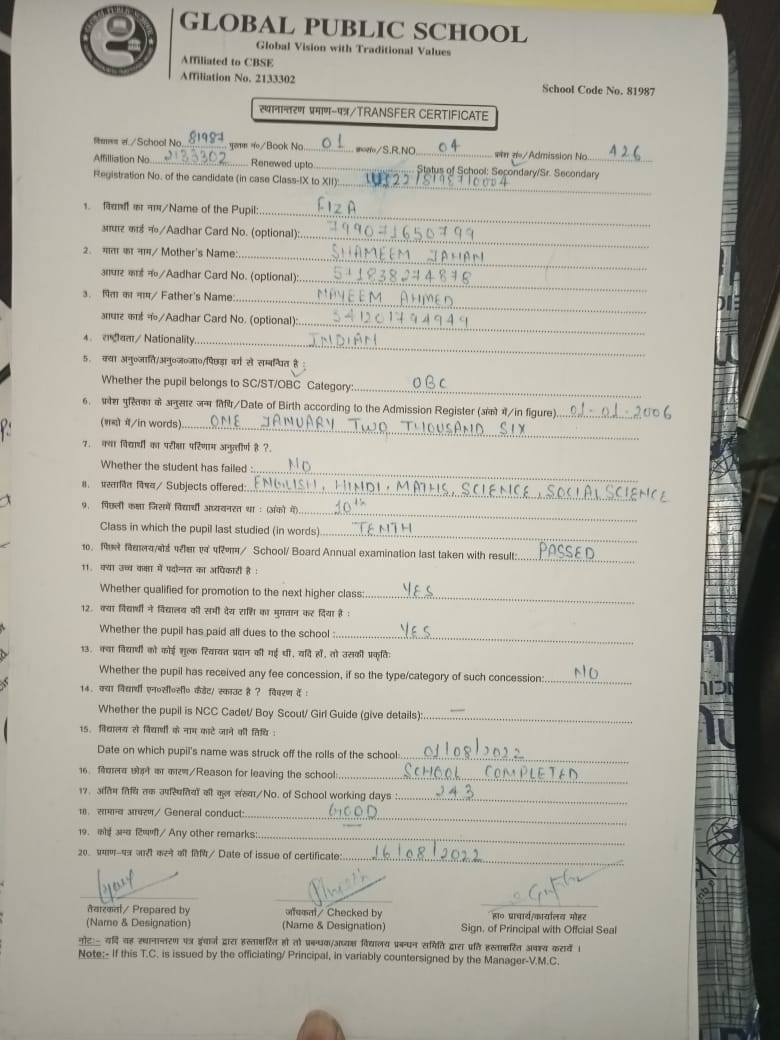 GLOBAL PUBLIC SCHOOL
Global Vision with Traditional Values
Affiliated to CBSE
Affiliation No. 2133302
School Code No. 81987
स्थानान्तरण प्रमाण-पत्र/TRANSFER CERTIFICATE
विद्यालय सं./School No. 81987 पुस्तक नं०/Book No. 01 क्र०सं०/S.R.NO. 04 प्रवेश सं०/Admission No. 426
Affilliation No. 2133302 Renewed upto Status of School: Secondary/Sr. Secondary
Registration No. of the candidate (in case Class-IX to XII):
1. विद्यार्थी का नाम/Name of the Pupil: FIZA
आधार कार्ड नं०/Aadhar Card No. (optional): 799071650799
2. माता का नाम/ Mother's Name: SHAMEEM JAHAN
आधार कार्ड नं०/Aadhar Card No. (optional): 511838274878
3. पिता का नाम/ Father's Name: NAYEEM AHMED
आधार कार्ड नं०/Aadhar Card No. (optional):
4. राष्ट्रीयता/ Nationality INDIAN
5. क्या अनु०जाति/अनु०ज०जा०/पिछड़ा वर्ग से सम्बन्धित है :
Whether the pupil belongs to SC/ST/OBC Category: OBC
6. प्रवेश पुस्तिका के अनुसार जन्म तिथि/Date of Birth according to the Admission Register (अंको में/in figure) 01-01-2006
(शब्दो में/in words) ONE JANUARY TWO THOUSAND SIX
7. क्या विद्यार्थी का परीक्षा परिणाम अनुत्तीर्ण है ?.
Whether the student has failed : NO
8. प्रस्तावित विषय/ Subjects offered: ENGLISH, HINDI, MATHS, SCIENCE, SOCIAL SCIENCE
9. पिछली कक्षा जिसमें विद्यार्थी अध्ययनरत था : (अंको में) 10th
Class in which the pupil last studied (in words) TENTH
10. पिछले विद्यालय/बोर्ड परीक्षा एवं परिणाम/ School/ Board Annual examination last taken with result: PASSED
11. क्या उच्च कक्षा में पदोन्नत का अधिकारी है :
Whether qualified for promotion to the next higher class: YES
12. क्या विद्यार्थी ने विद्यालय की सभी देय राशि का भुगतान कर दिया है :
Whether the pupil has paid all dues to the school : YES
13. क्या विद्यार्थी को कोई शुल्क रियायत प्रदान की गई थी, यदि हाँ, तो उसकी प्रकृति:
Whether the pupil has received any fee concession, if so the type/category of such concession: NO
14. क्या विद्यार्थी एन०सी०सी० कैडेट/ स्काउट है ? विवरण दें :
Whether the pupil is NCC Cadet/ Boy Scout/ Girl Guide (give details): —
15. विद्यालय से विद्यार्थी के नाम काटे जाने की तिथि :
Date on which pupil's name was struck off the rolls of the school: 01/08/2022
16. विद्यालय छोड़ने का कारण/Reason for leaving the school: SCHOOL COMPLETED
17. अंतिम तिथि तक उपस्थितियों की कुल संख्या/No. of School working days : 243
18. सामान्य आचरण/ General conduct: GOOD
19. कोई अन्य टिप्पणी/ Any other remarks: —
20. प्रमाण-पत्र जारी करने की तिथि/ Date of issue of certificate: 16/08/2022
तैयारकर्ता/ Prepared by
(Name & Designation)
जाँचकर्ता/ Checked by
(Name & Designation)
ह० प्राचार्य/कार्यालय मोहर
Sign. of Principal with Offcial Seal
नोट:- यदि यह स्थानान्तरण पत्र इंचार्ज द्वारा हस्ताक्षरित हो तो प्रबन्धक/अध्यक्ष विद्यालय प्रबन्धन समिति द्वारा प्रति हस्ताक्षरित अवश्य करायें ।
Note:- If this T.C. is issued by the officiating/ Principal, in variably countersigned by the Manager-V.M.C.